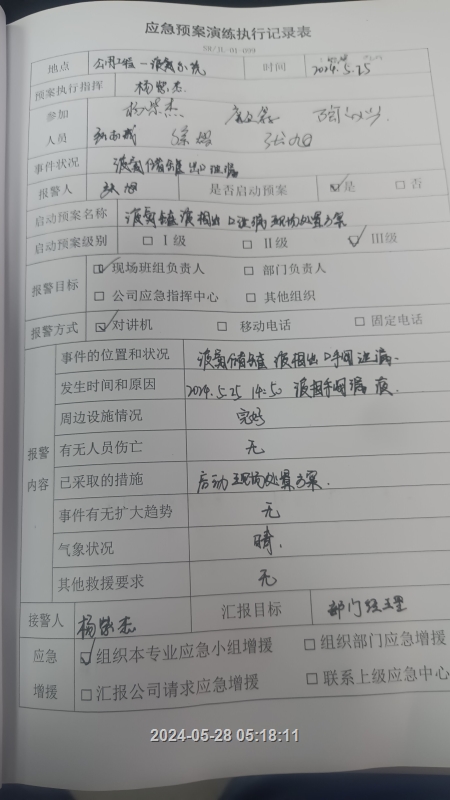 应急预案演练执行记录表
地点 公用工程一液氨系统 时间 2024.5.25
预案执行指挥 杨荣杰
参加
人员
事件状况 液氨储罐出口泄漏
报警人 是否启动预案 ☑是 □否
启动预案名称 液氨储罐液相出口泄漏现场处置方案
启动预案级别 □Ⅰ级 □Ⅱ级 ☑Ⅲ级
报警目标 ☑现场班组负责人 □部门负责人
□公司应急指挥中心 □其他组织
报警方式 ☑对讲机 □移动电话 □固定电话
报警内容
事件的位置和状况 液氨储罐液相出口手阀泄漏.
发生时间和原因 2024.5.25 14:50 液相手阀漏液.
周边设施情况 完好
有无人员伤亡 无
已采取的措施 启动现场处置方案.
事件有无扩大趋势 无
气象状况 晴.
其他救援要求 无
接警人 杨荣杰 汇报目标 部门经理
应急增援 ☑组织本专业应急小组增援 □组织部门应急增援
□汇报公司请求应急增援 □联系上级应急中心
2024-05-28 05:18:11